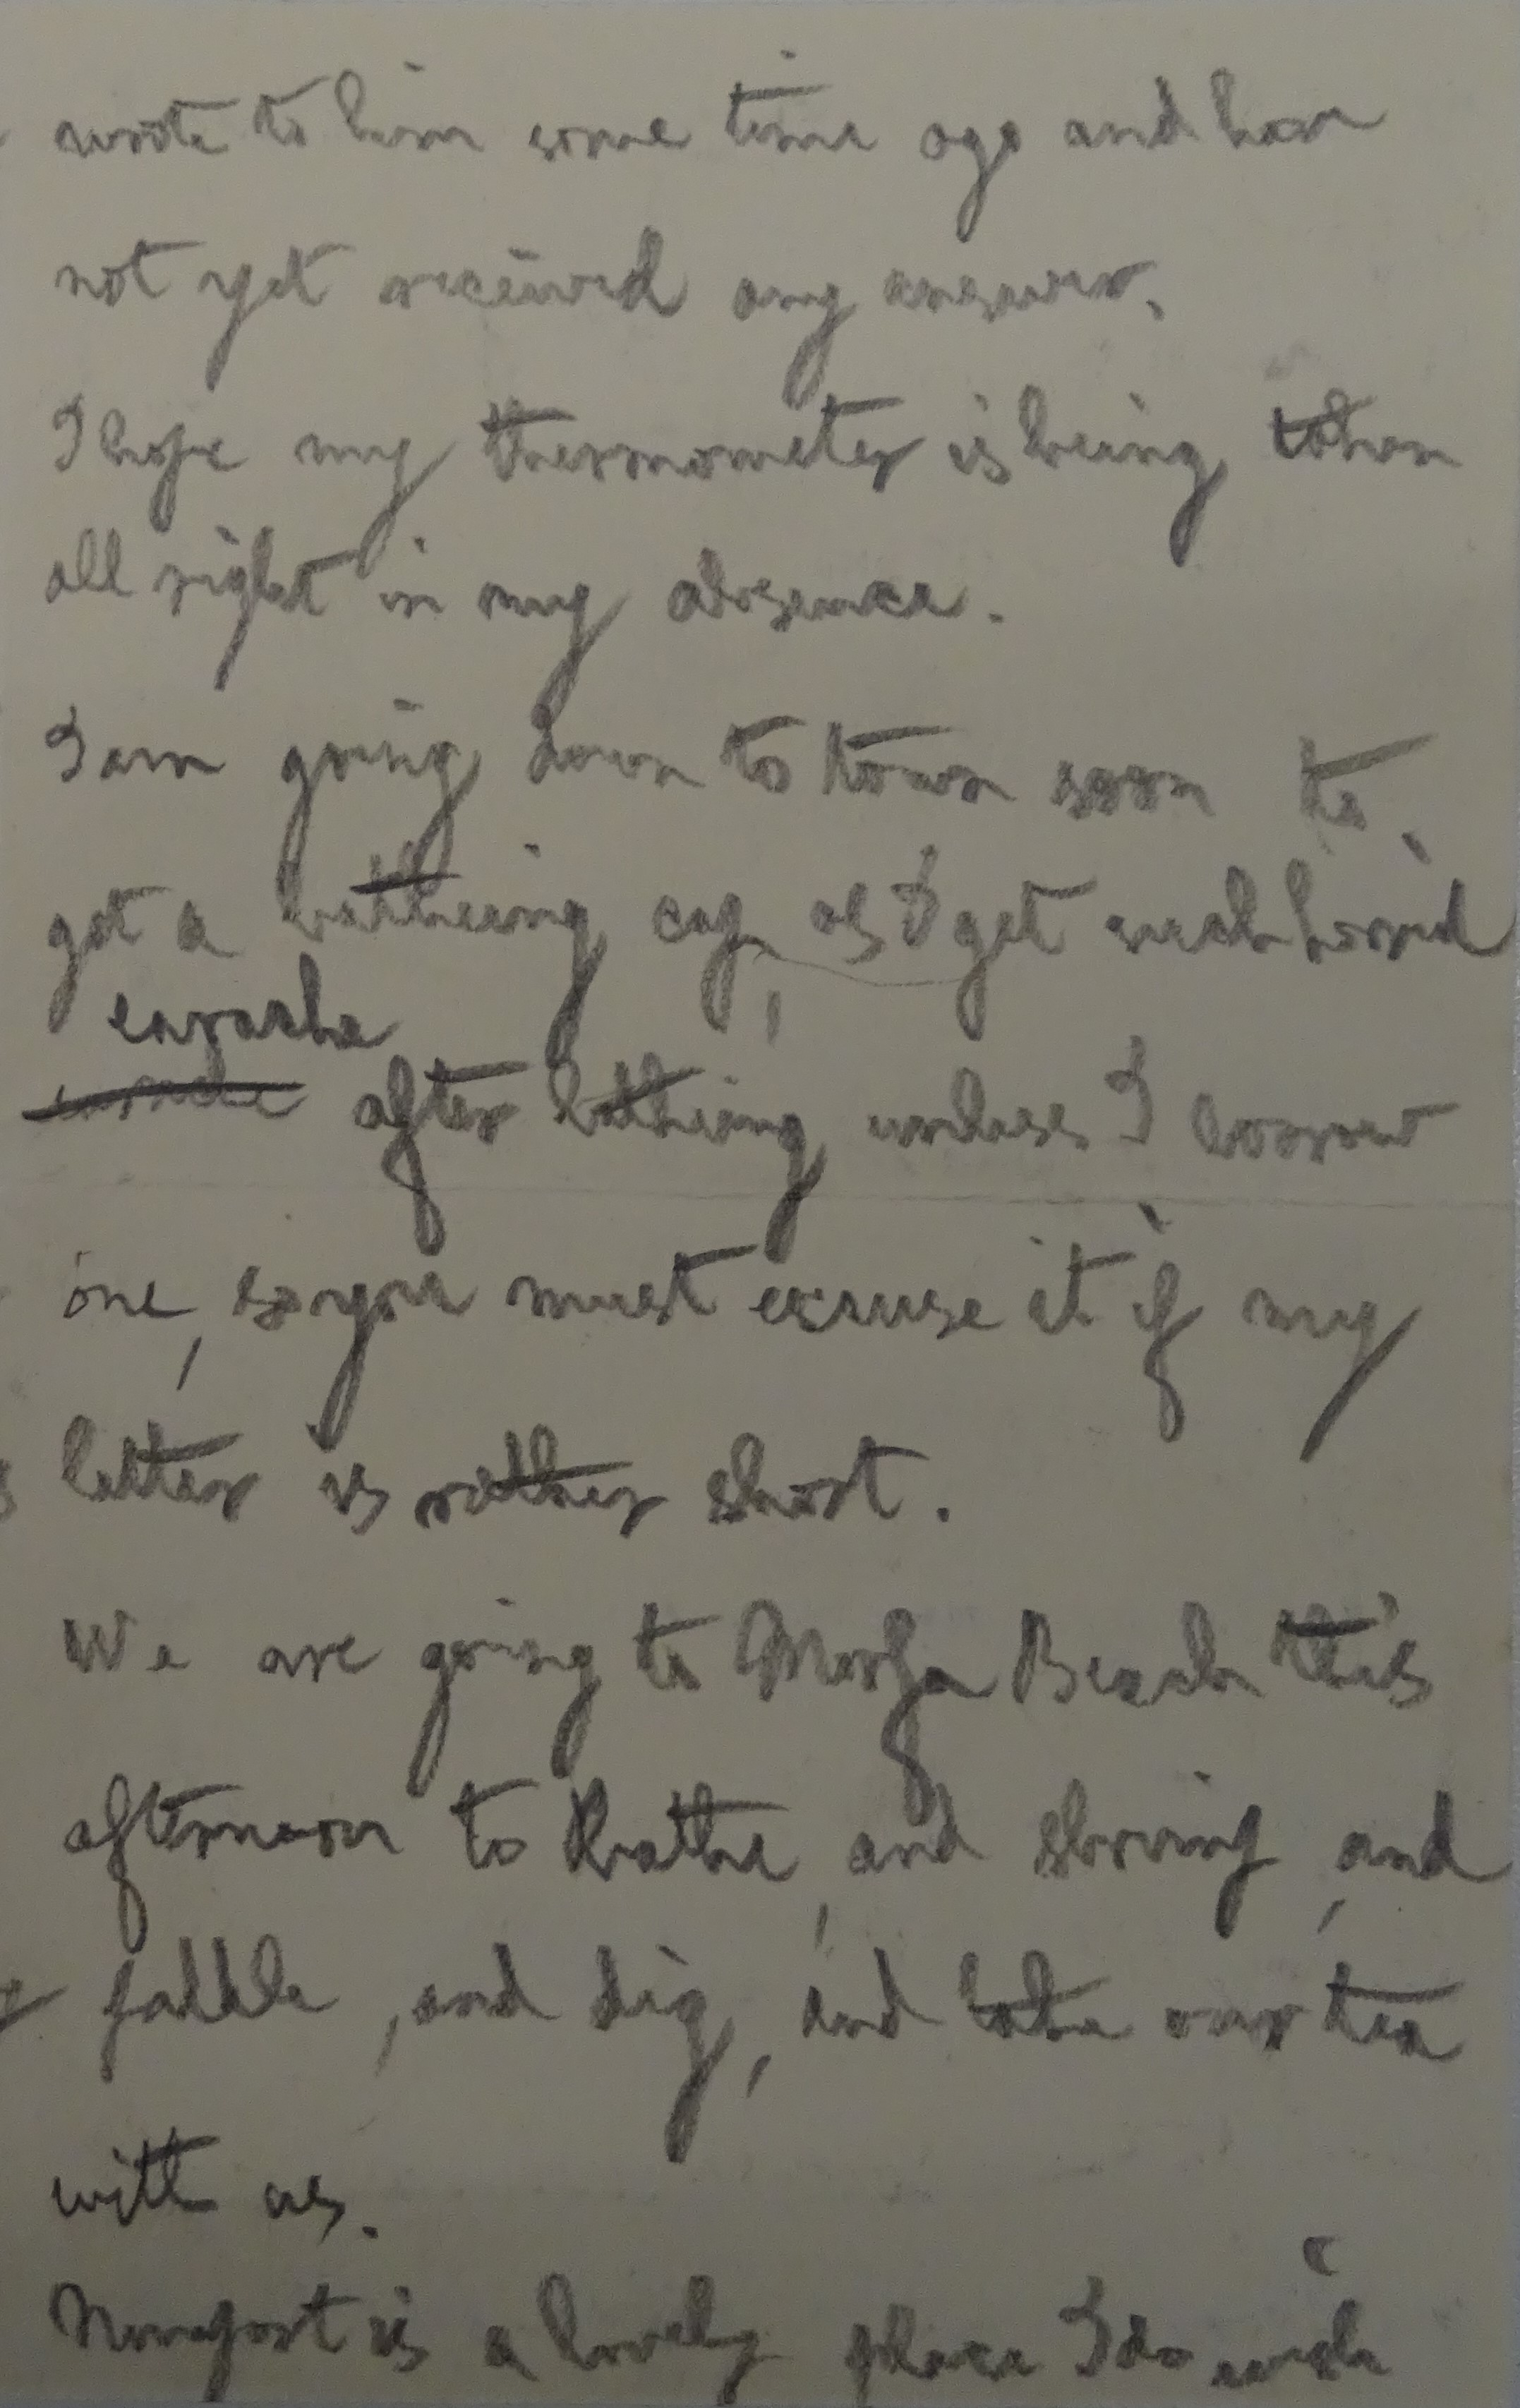 wrote to him some time ago and hav
not yet received any answer.
I hope my thermometer is being taken
all right in my absence.
I am going down to town soon to
get a batheing cap, as I get such horrid
earache
after batheing unless I borrow
one, so you must excuse it if my
letter is rather short.
We are going to Morfa Beach this
afternoon to bathe, and shrimp, and
paddle, and dig, and take our tea
with us.
Newport is a lovely place I do wish